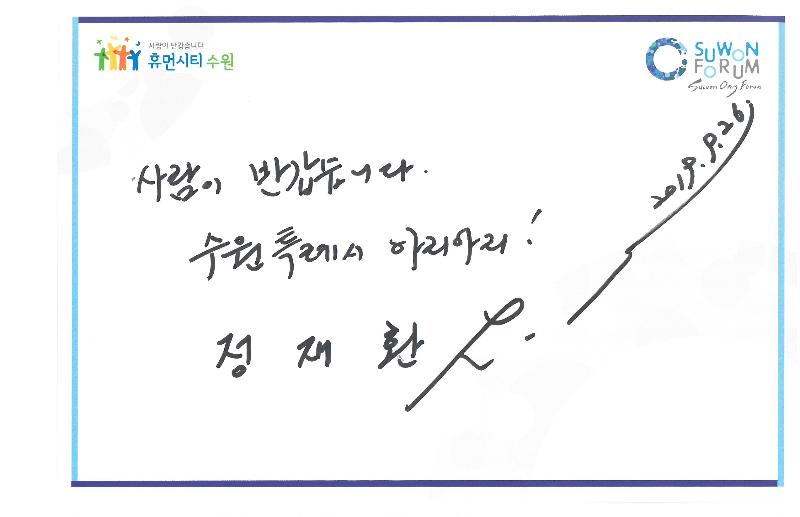 사람이 반갑습니다
휴먼시티 수원
SUWON
FORUM
Suwon Ong Forum
2019. 9. 26.
사람이 반갑습니다.
수원특례시 아리아리!
정 재 환